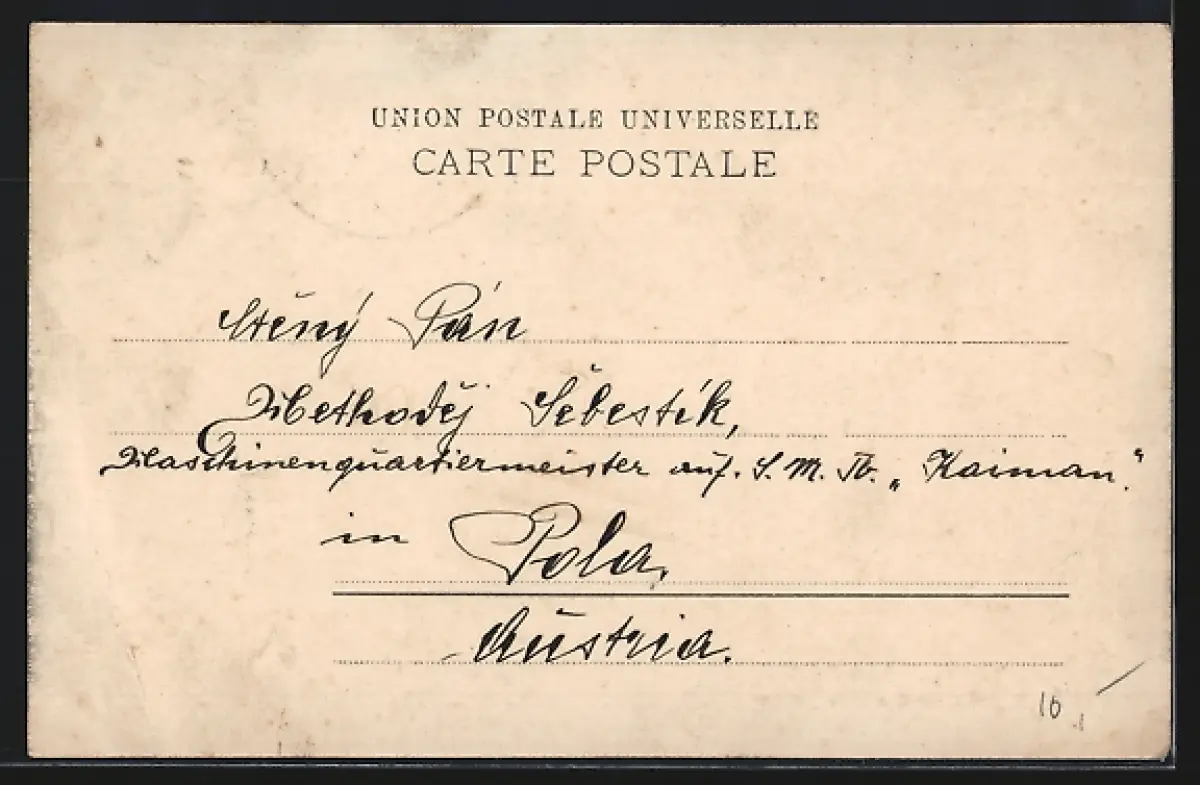 UNION POSTALE UNIVERSELLE
CARTE POSTALE
Ctěný Pán
Methoděj Šebestík,
Maschinenquartiermeister auf. S. M. Tb. „Kaiman."
in Pola,
Austria.
10